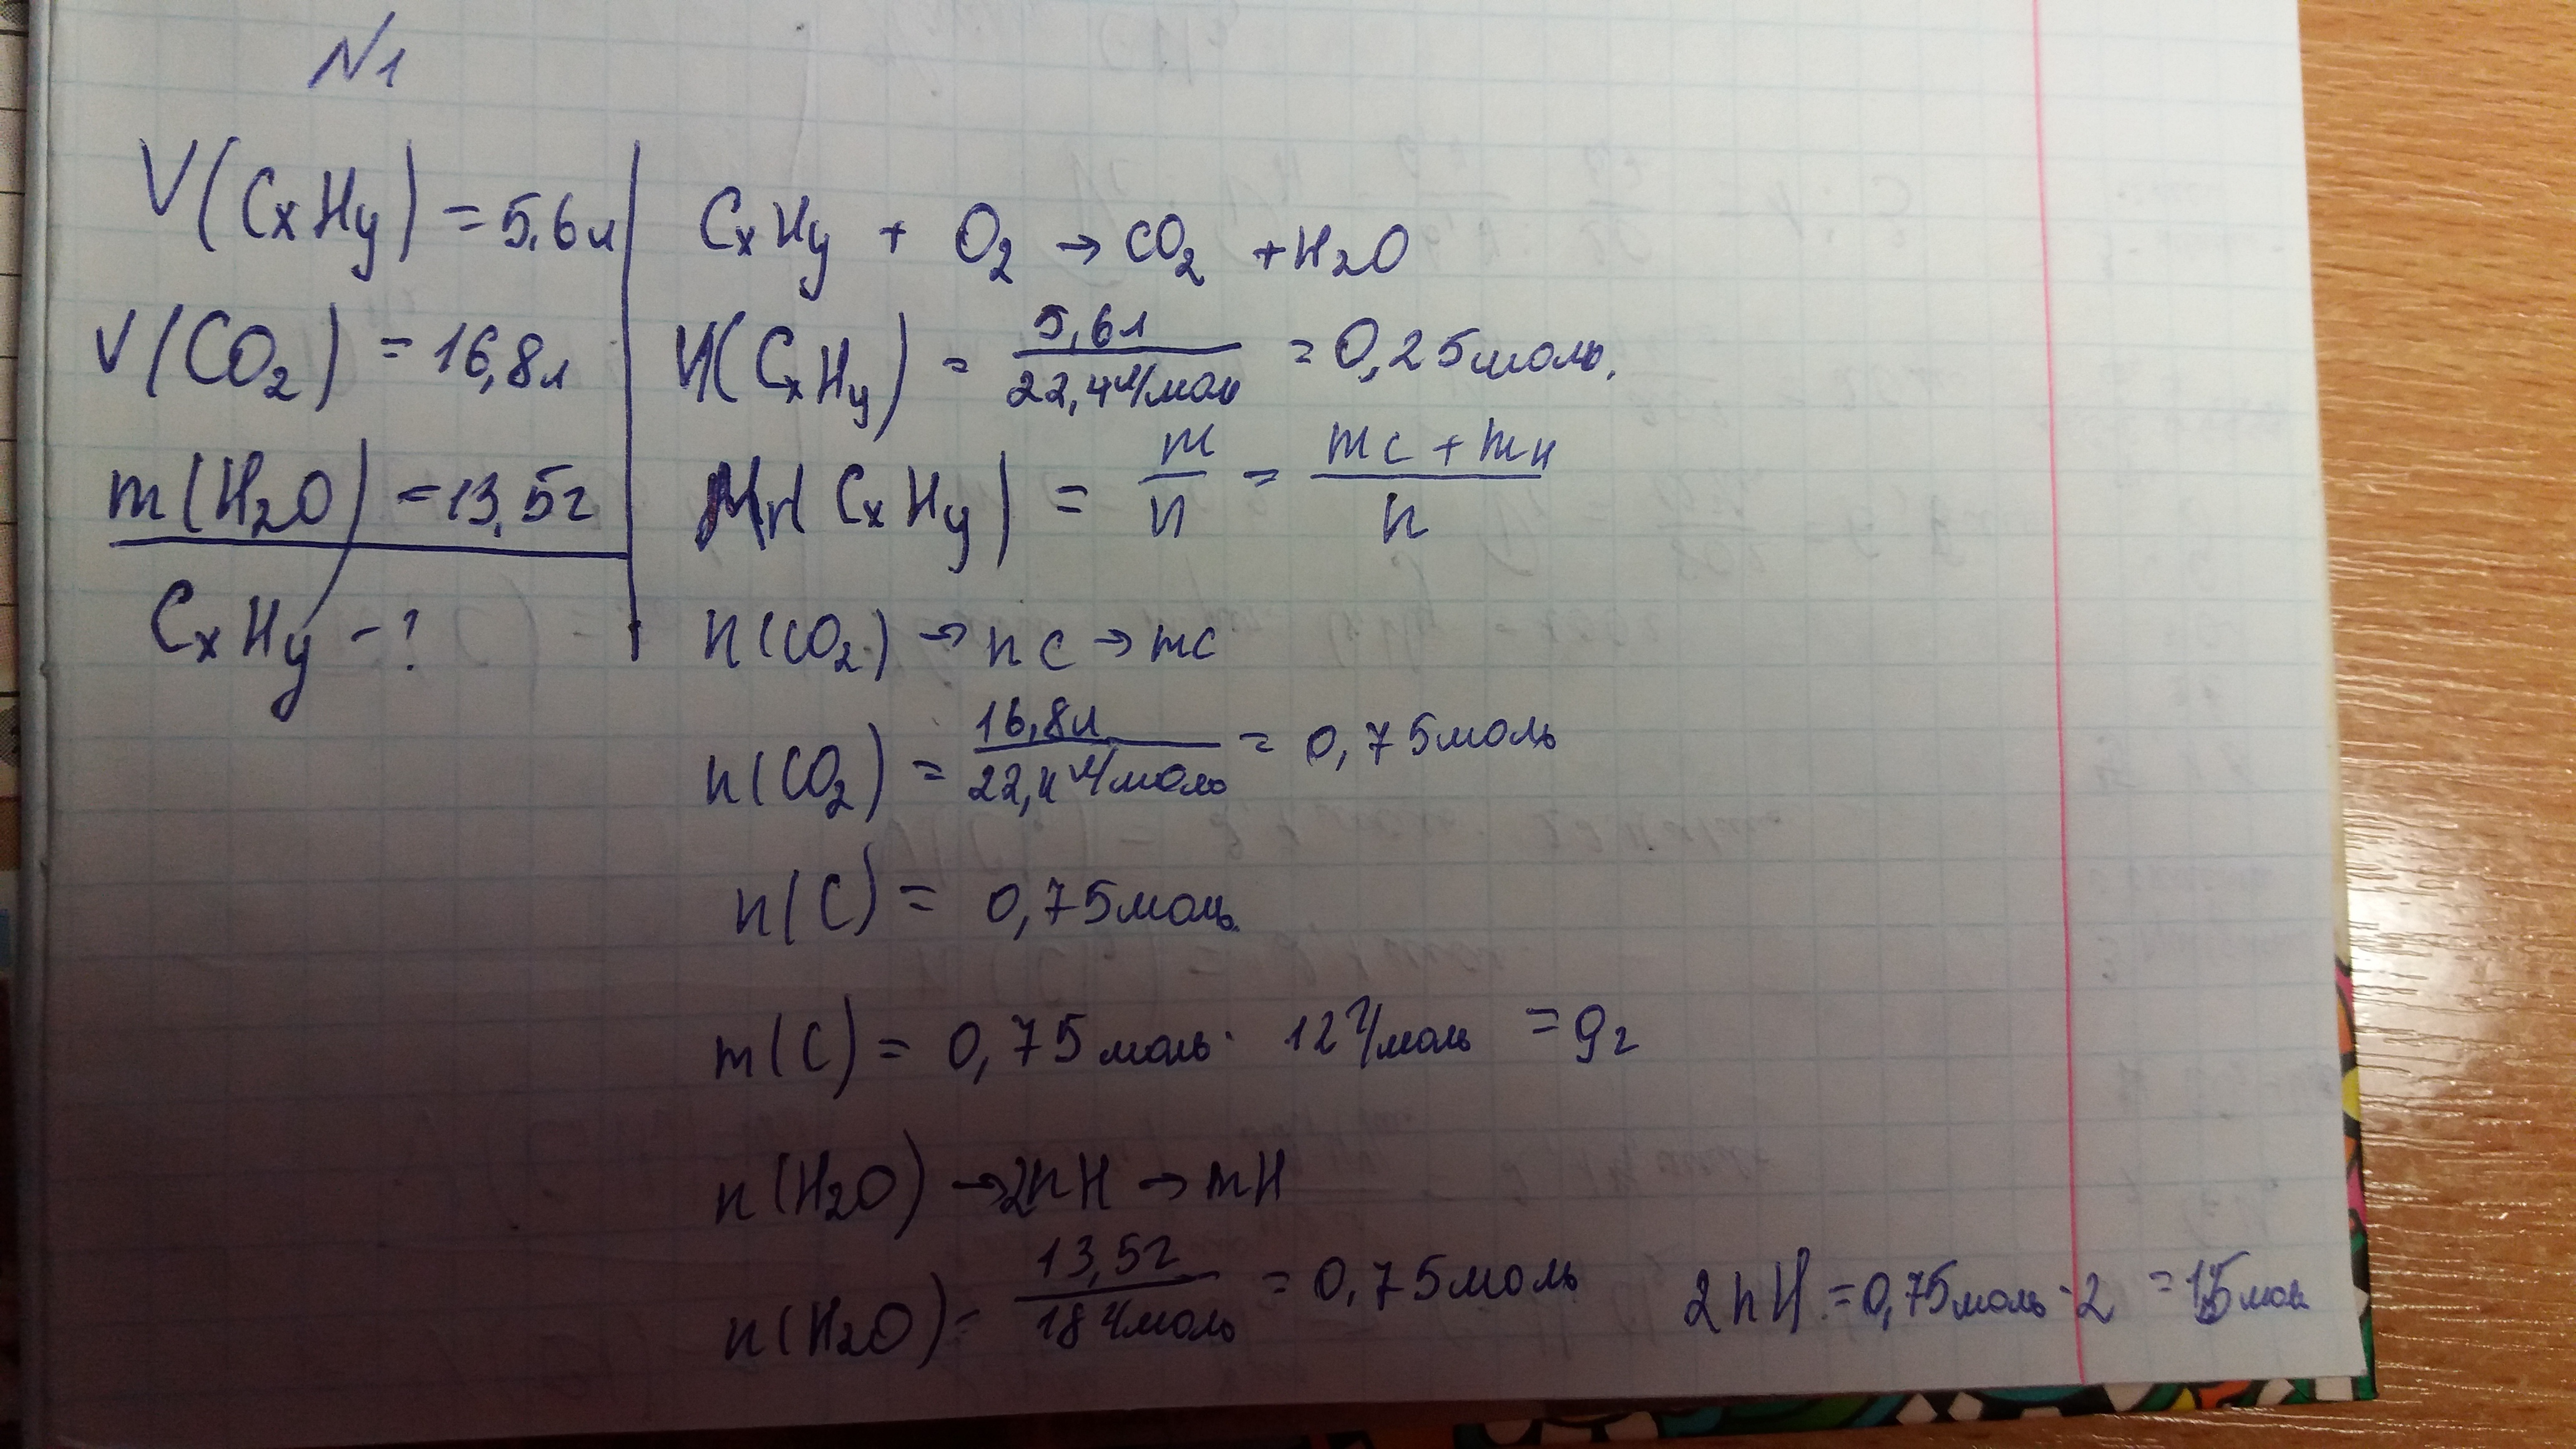 N1
V(CxHy) = 5,6л
V(CO2) = 16,8л
m(H2O) = 13,5г
CxHy - ?
CxHy + O2 → CO2 + H2O
n(CxHy) = 5,6л / 22,4л/мол = 0,25моль.
Mr(CxHy) = m / n = mc + mн / n
n(CO2) → nc → mc
n(CO2) = 16,8л / 22,4л/моль = 0,75моль
n(C) = 0,75моль.
m(C) = 0,75моль · 12г/моль = 9г
n(H2O) → 2nH → mH
n(H2O) = 13,5г / 18г/моль = 0,75моль 2nH = 0,75моль · 2 = 1,5мол